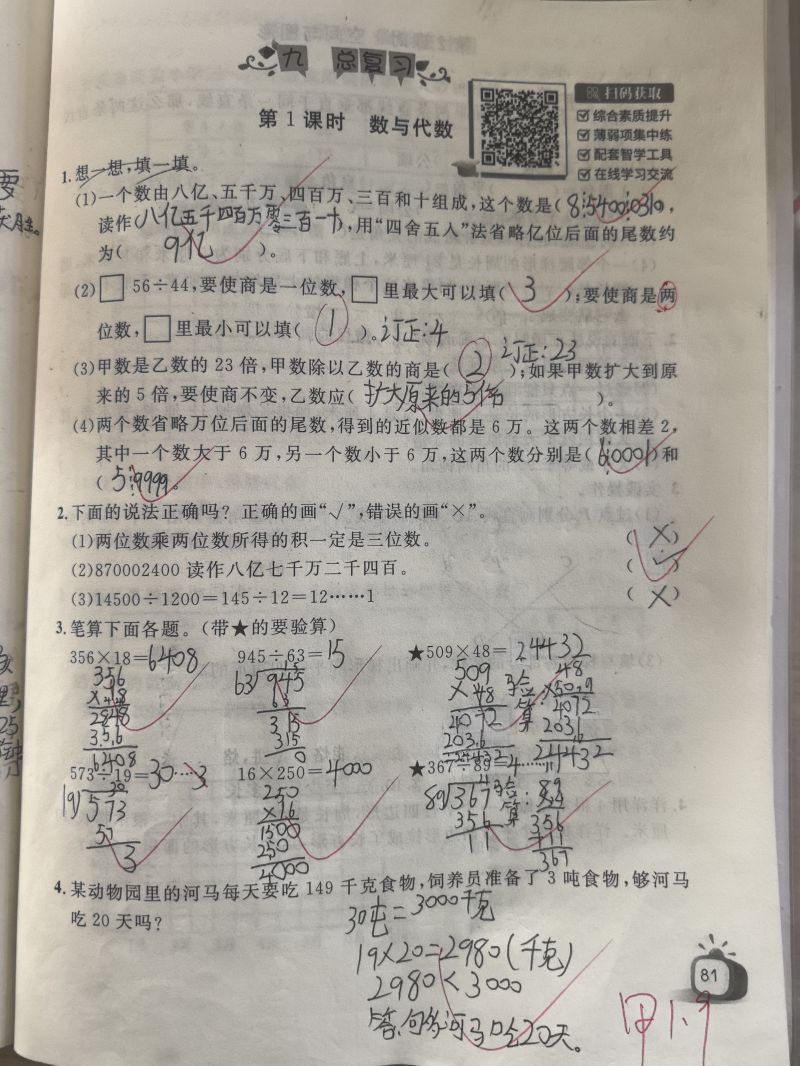 九 总复习
第1课时 数与代数
扫码获取
综合素质提升
薄弱项集中练
配套智学工具
在线学习交流
1.想一想,填一填。
(1)一个数由八亿、五千万、四百万、三百和十组成,这个数是(854000310),
读作(八亿五千四百万零三百一十),用“四舍五入”法省略亿位后面的尾数约
为( 9亿 )。
(2)□56÷44,要使商是一位数,□里最大可以填( 3 );要使商是两
位数,□里最小可以填( 1 )。订正:4
(3)甲数是乙数的23倍,甲数除以乙数的商是( 2 );如果甲数扩大到原 订正:23
来的5倍,要使商不变,乙数应(扩大原来的5倍)。
(4)两个数省略万位后面的尾数,得到的近似数都是6万。这两个数相差2,
其中一个数大于6万,另一个数小于6万,这两个数分别是(60001)和
(59999)。
2.下面的说法正确吗?正确的画“√”,错误的画“×”。
(1)两位数乘两位数所得的积一定是三位数。 (×)
(2)870002400读作八亿七千万二千四百。 (√)
(3)14500÷1200=145÷12=12……1 (×)
3.笔算下面各题。(带★的要验算)
356×18=6408 945÷63=15 ★509×48=24432
356 15 509 验算: 48
×18 63)945 ×48 ×509
2848 63 4072
356 315 2036
6408 315 24432 24432
0
573÷19=30……3 16×250=4000 ★367÷89=4……11
30 250 4 验算: 89
19)573 ×16 89)367
57 1500 356 356
3 250 11 +11
4000 367
4.某动物园里的河马每天要吃149千克食物,饲养员准备了3吨食物,够河马
吃20天吗?
30吨=3000千克
19×20=2980(千克)
2980<3000
答:河马吃20天。
81
甲 1.9